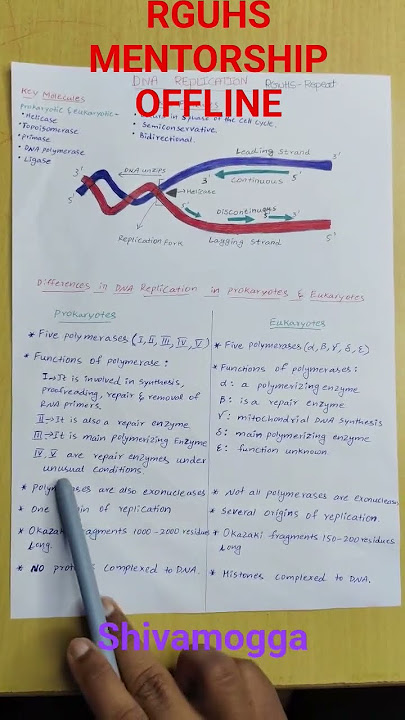 RGUHS
MENTORSHIP
OFFLINE
DNA REPLICATION RGUHS-Repeat
Key Molecules
Prokaryotic & eukaryotic-
• Helicase
• Topoisomerase
• Primase
• DNA polymerase
• Ligase
in S phase of the cell cycle.
• Semiconservative.
• Bidirectional.
Leading Strand
3'
3'
Continuous
5'
DNA unzips
Helicase
3'
5'
Discontinuous
5'
3'
5'
Replication fork
Lagging Strand
Differences in DNA Replication in Prokaryotes & Eukaryotes
Prokaryotes
* Five polymerases (I, II, III, IV, V)
* Functions of polymerase:
I→It is involved in synthesis,
proofreading, repair & removal of
RNA primers.
II→It is also a repair enzyme
III→It is main Polymerizing Enzyme
IV, V are repair enzymes under
unusual conditions.
* Polymerases are also exonucleases
* One of replication
* Okazaki fragments 1000-2000 residues
Long.
* NO complexed to DNA.
Eukaryotes
* Five polymerases (α, β, γ, δ, ε)
* Functions of polymerases:
α: a polymerizing enzyme
β: is a repair enzyme
γ: mitochondrial DNA synthesis
δ: main polymerizing enzyme
ε: function unknown.
* Not all polymerases are exonucleases
* Several origins of replication.
* Okazaki fragments 150-200 residues
Long
* Histones complexed to DNA.
Shivamogga